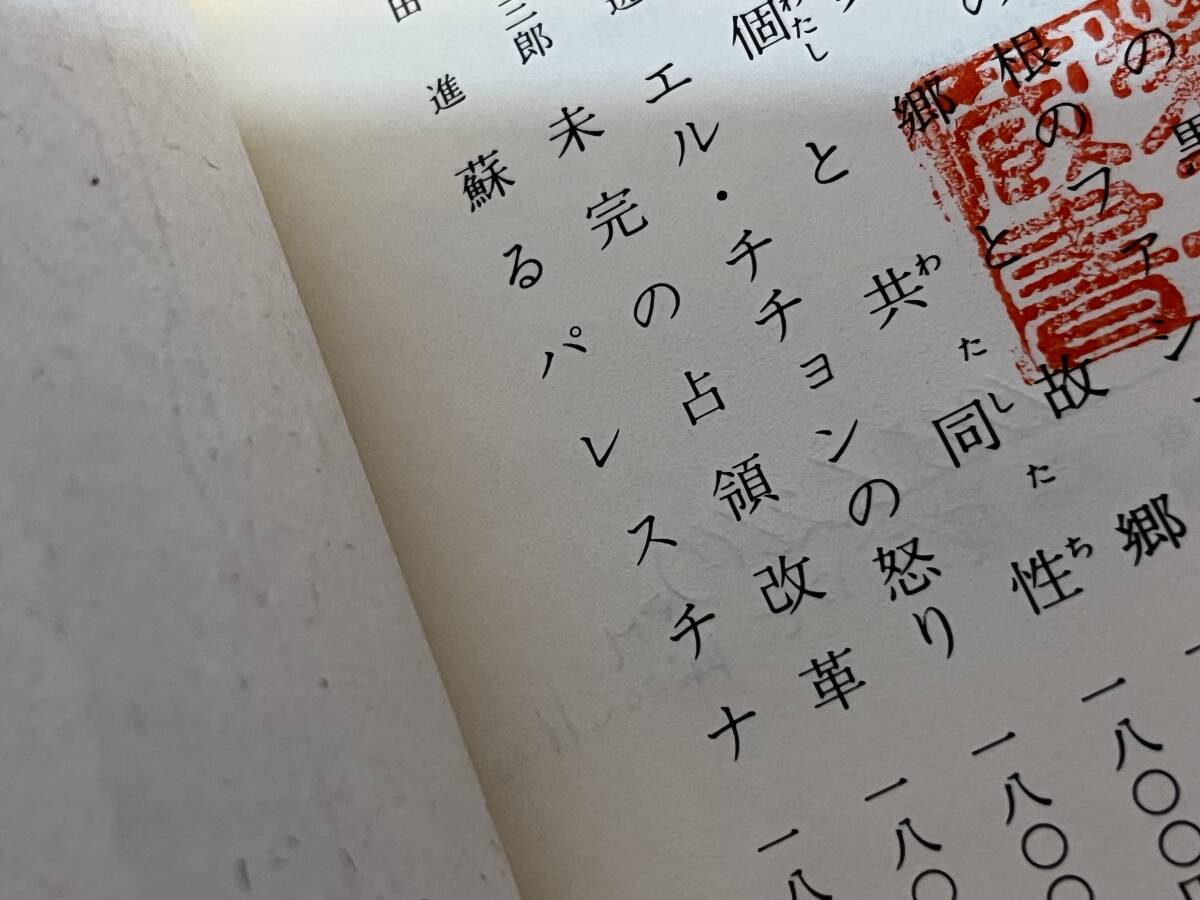 根のファ
郷と故郷
個と共同性 一八〇〇
わたし わたしたち
エル・チチョンの怒り 一八〇〇
三郎 未完の占領改革 一八〇
進 蘇るパレスチナ 一八